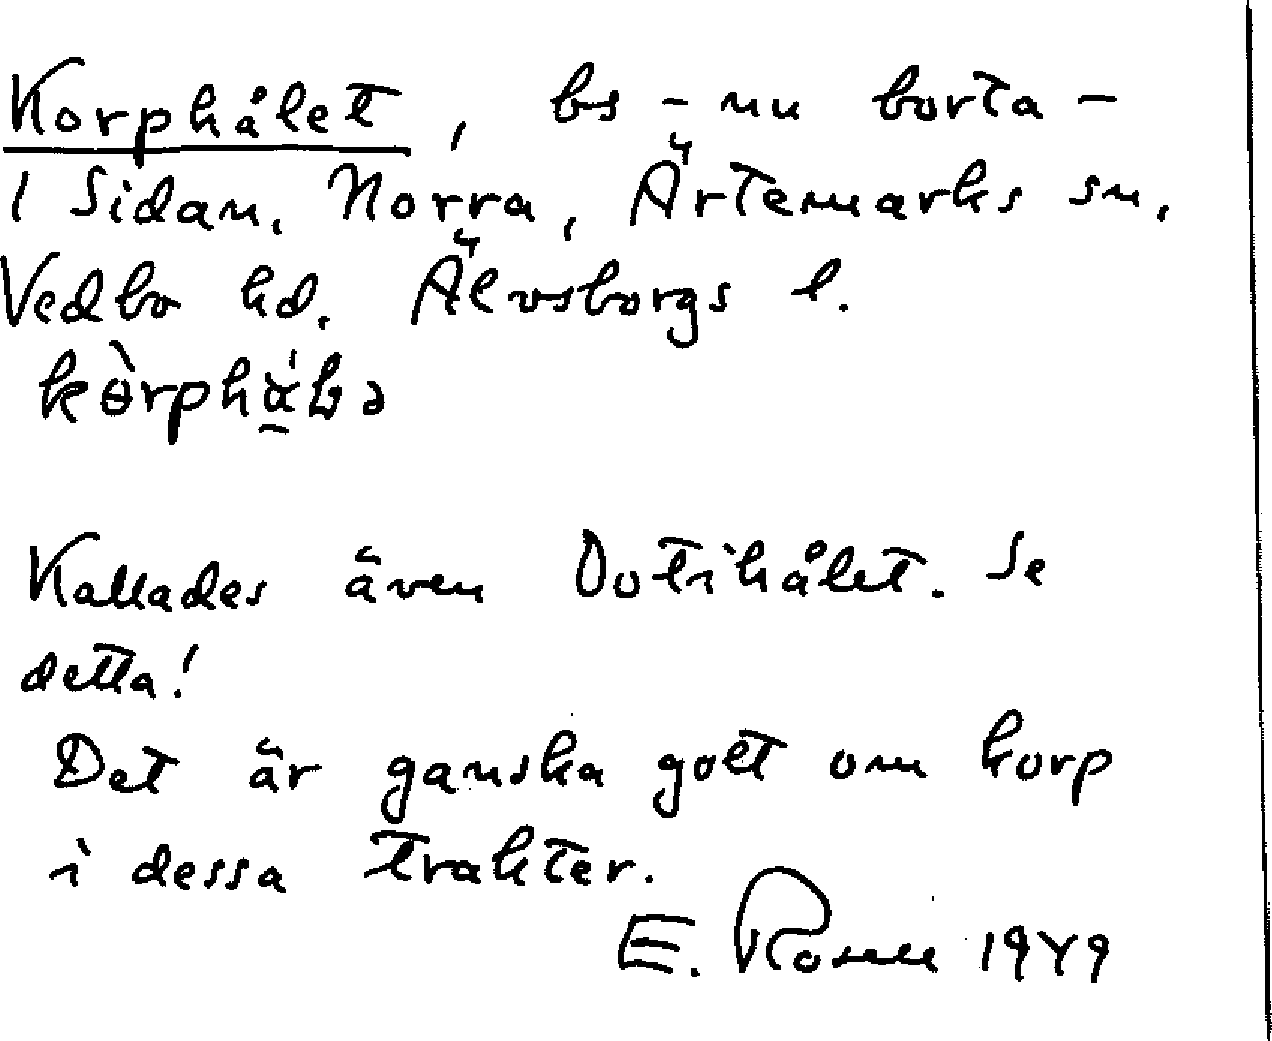 Korphålet, bs - nu borta -
I Sidan, Norra, Ärtemarks sn,
Vedbo hd. Älvsborgs l.
Kallades även Dotihålet. Se
detta!
Det är ganska gott om korp
i dessa trakter.
E. Rosell 1949